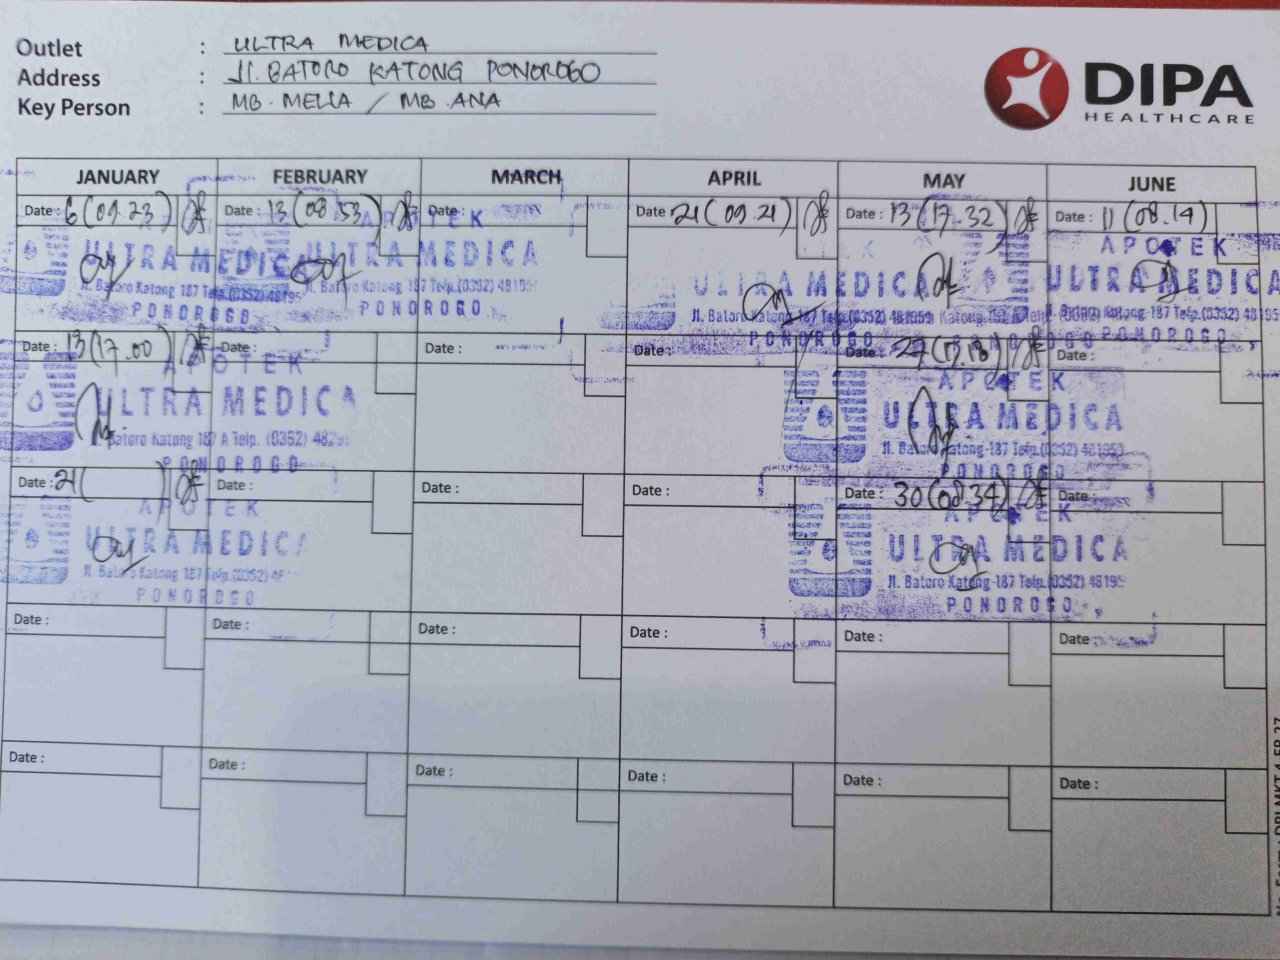 Outlet : ULTRA MEDICA
Address : Jl. BATORO KATONG PONOROGO
Key Person : MB. MELLA / MB. ANA
DIPA
HEALTHCARE
JANUARY FEBRUARY MARCH APRIL MAY JUNE
Date : 6 (09.23) Date : 13 (08.53) Date : Date : 21 (09.21) Date : 13 (17.32) Date : 11 (08.14)
APOTEK APOTEK
ULTRA MEDICA ULTRA MEDICA ULTRA MEDICA ULTRA MEDICA
Jl. Batoro Katong 187 Telp. (0352) 48195 Jl. Batoro Katong 187 Telp. (0352) 481959 Jl. Batoro Katong 187 Telp. (0352) 481959 Katong 187 Telp.
PONOROGO PONOROGO PONOROGO PONOROGO
Date : 13 (17.00) Date : Date : Date : Date : 27 (17.18) Date :
APOTEK APOTEK
ULTRA MEDICA ULTRA MEDICA
Batoro Katong 187 A Telp. (0352) Jl. Batoro Katong 187 Telp. (0352) 481959
PONOROGO PONOROGO
Date : 21 ( ) Date : Date : Date : Date : 30 (08.34) Date :
APOTEK APOTEK
ULTRA MEDICA ULTRA MEDICA
Jl. Batoro Katong 187 Telp. (0352) Jl. Batoro Katong 187 Telp. (0352) 48195
PONOROGO PONOROGO
Date : Date : Date : Date : Date : Date :
Date : Date : Date : Date : Date : Date :